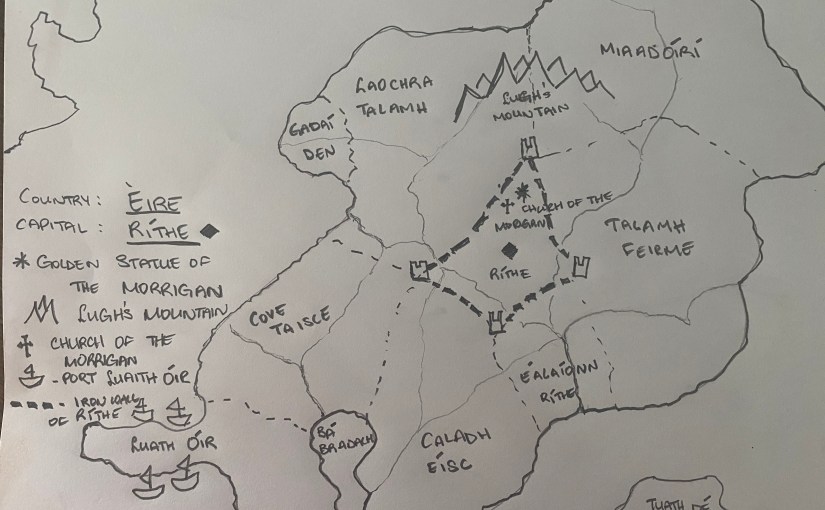 MIAADÓIRÍ
LAOCHRA
TALAMH
LUGH'S
MOUNTAIN
GADAÍ
DEN
CHURCH OF THE
MORRIGAN
TALAMH
FEIRME
RÍTHE
COUNTRY: ÈIRE
CAPITAL: RÍTHE
GOLDEN STATUE OF
THE MORRIGAN
LUGH'S MOUNTAIN
CHURCH OF THE
MORRIGAN
- PORT LUAITH ÓIR
- IRON WALL
OF RÍTHE
COVE
TAISCE
ÉALAÍONN
RÍTHE
LUATH ÓIR
BÁ
BRADACH
CALADH
ÉISC
TUATH DÉ